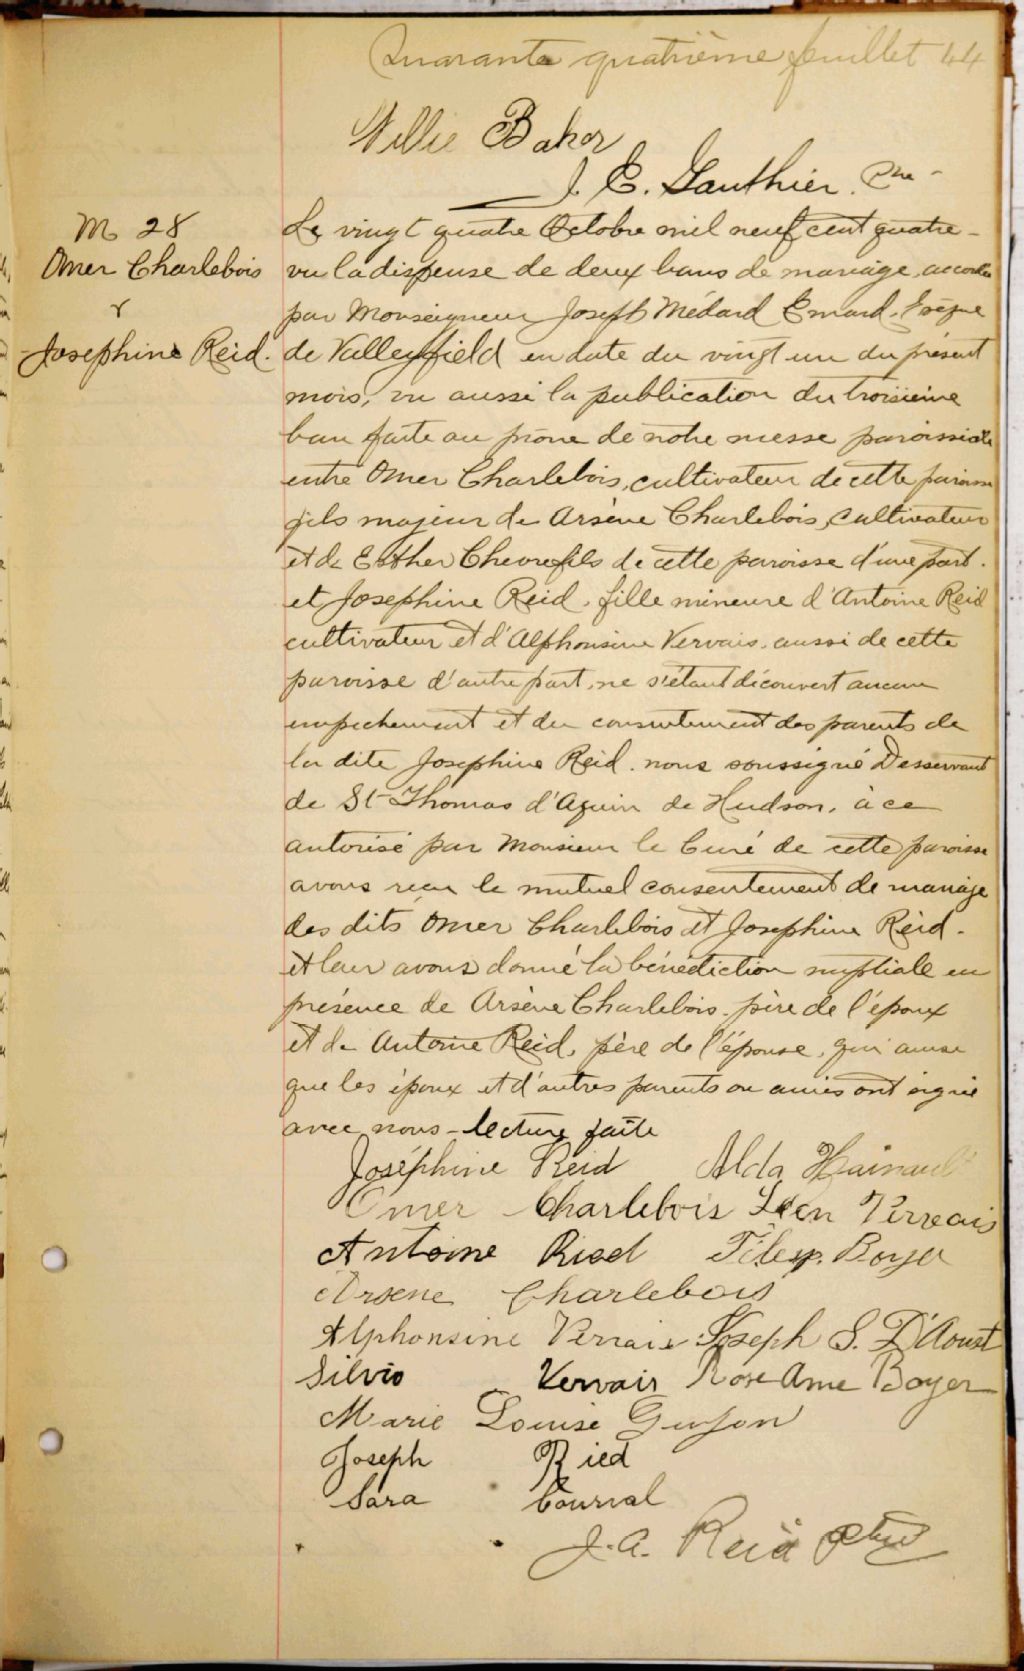 Quarante quatrième feuillet 44
Willie Baker
J. E. Gauthier. Ptre
M 28
Omer Charlebois
&
Josephine Reid.
Le vingt quatre Octobre mil neuf cent quatre -
vu la dispense de deux bans de mariage, accordée
par Monseigneur Joseph Médard Emard, Évêque
de Valleyfield en date du vingt un du présent
mois, vu aussi la publication du troisième
ban faite au prône de notre messe paroissiale
entre Omer Charlebois, cultivateur de cette paroisse
fils majeur de Arsène Charlebois, cultivateur
et de Esther Chevrefils de cette paroisse d'une part.
et Josephine Reid, fille mineure d'Antoine Reid
cultivateur et d'Alphonsine Vervais, aussi de cette
paroisse d'autre part, ne s'étant découvert aucun
empechement et du consentement des parents de
la dite Josephine Reid. nous soussigné Desservant
de St Thomas d'Aquin de Hudson, à ce
autorisé par Monsieur le Curé de cette paroisse
avons reçu le mutuel consentement de mariage
des dits Omer Charlebois et Josephine Reid.
et leur avons donné la bénédiction nuptiale en
présence de Arsène Charlebois, père de l'époux
et de Antoine Reid, père de l'épouse, qui ainsi
que les époux et d'autres parents ou amies ont signé
avec nous - lecture faite
Joséphine Reid Alda Hainault
Omer Charlebois Léon Verrais
Antoine Ried Boyer
Arsene Charlebois
Alphonsine Verrais Joseph S. D'Aoust
Silvio Vervais Rose Ame Boyer
Marie Louise Guyon
Joseph Ried
Sara Courval
J. A. Reid Ptre